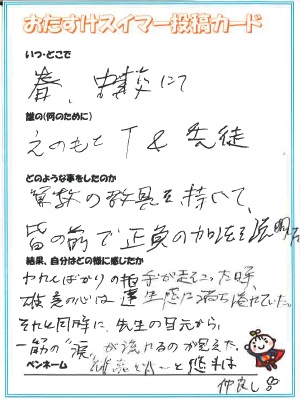 おたすけスイマー投稿カード
いつ・どこで
春、授業にて
誰の(何のために)
えのもと T & 生徒
どのような事をしたのか
算数の教具を持いて、
皆の前で正負の加法を説明した
結果、自分はどの様に感じたか
われんばかりの拍手が起こった時、
雄亮の心は達生感に満ち溢れていた。
それと同時に、先生の目元から、
一筋の“涙”が流れるのが見えた。
ペンネーム
雄亮
仲良し